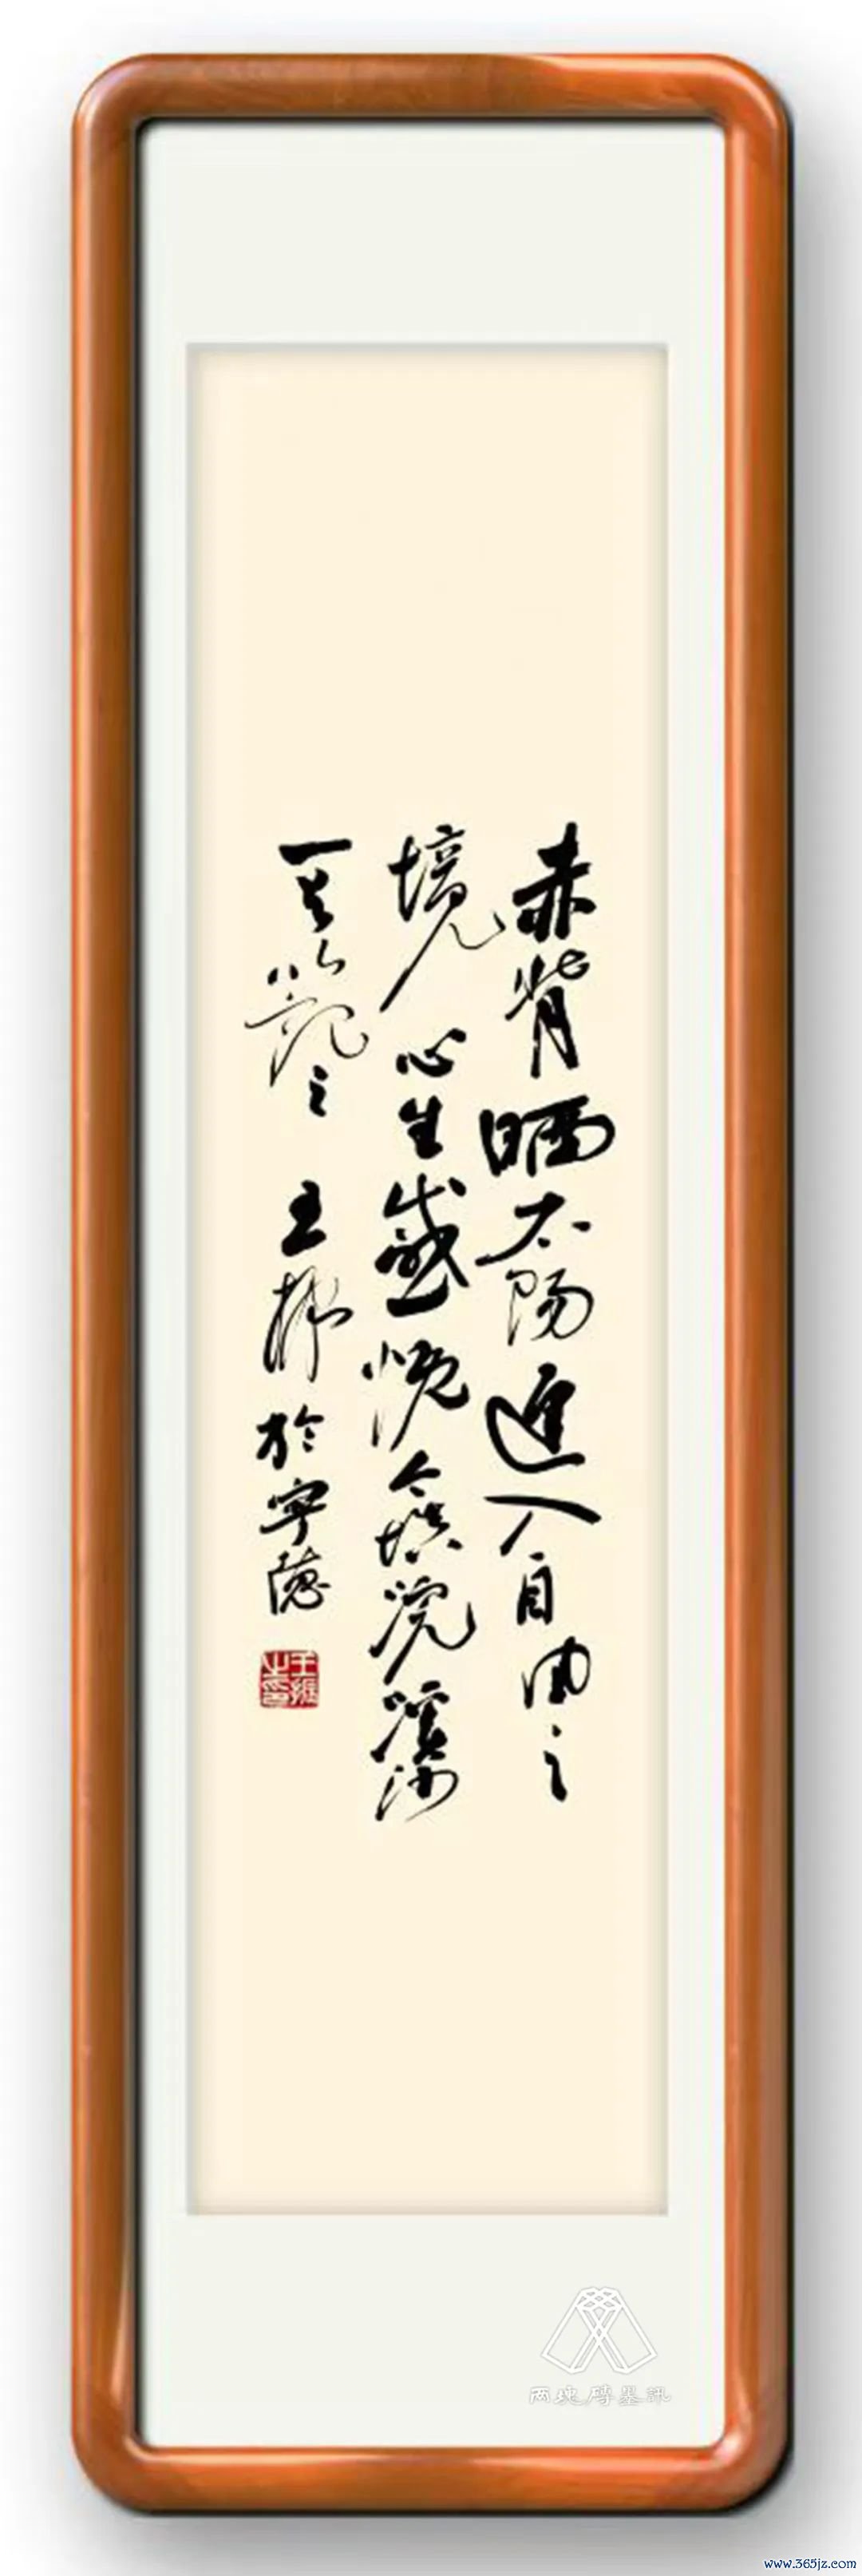 赤背晒太陽進入自由之
境心生感悦今填浣溪沙
一首以記之 王振於宁德
王振之印
两块砖墨訊
www.365jz.com